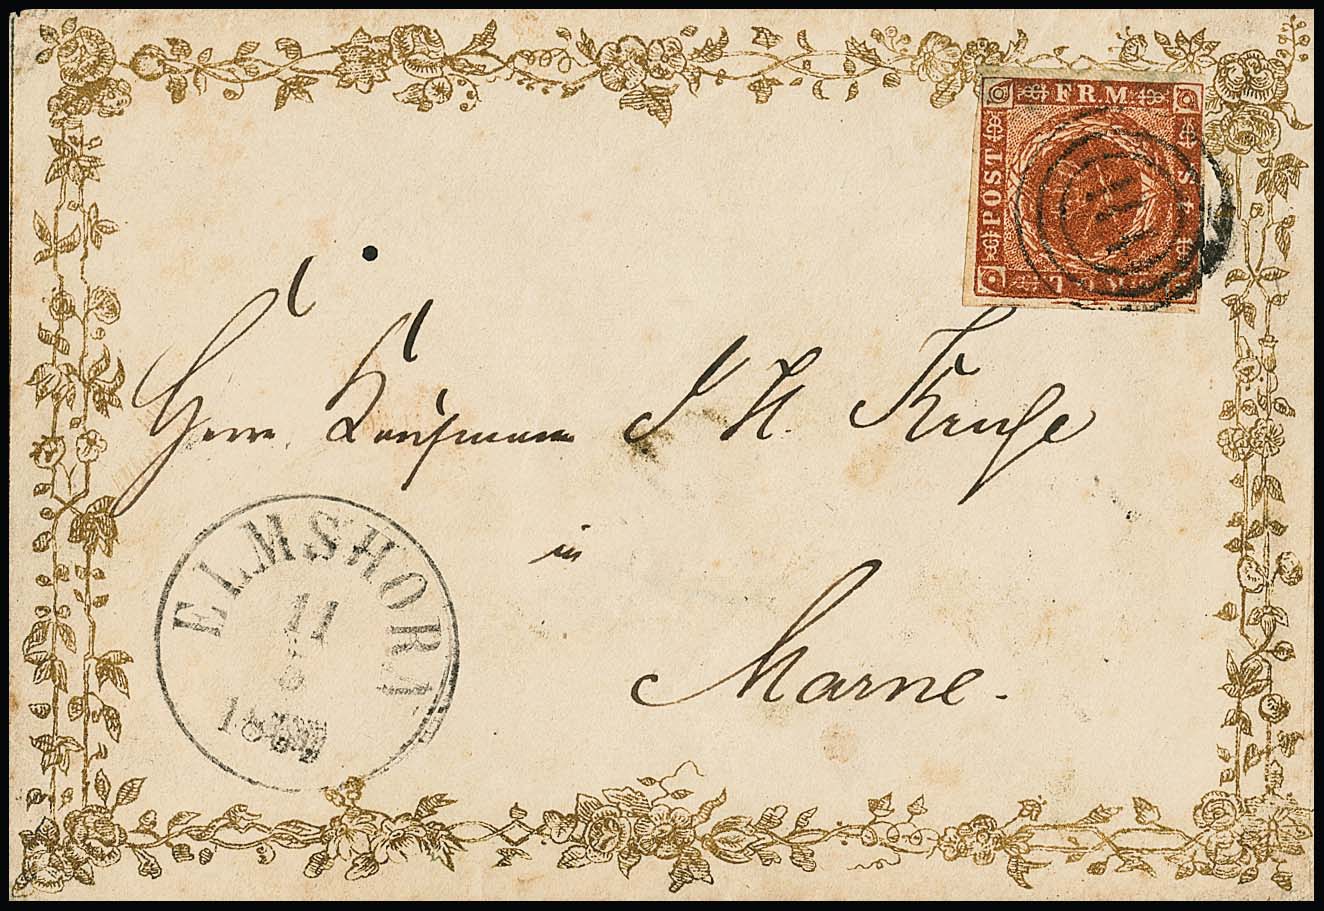 FRM
POST
S
Herrn Kaufmann J H. Kruse
in
Marne.
ELMSHORN
11